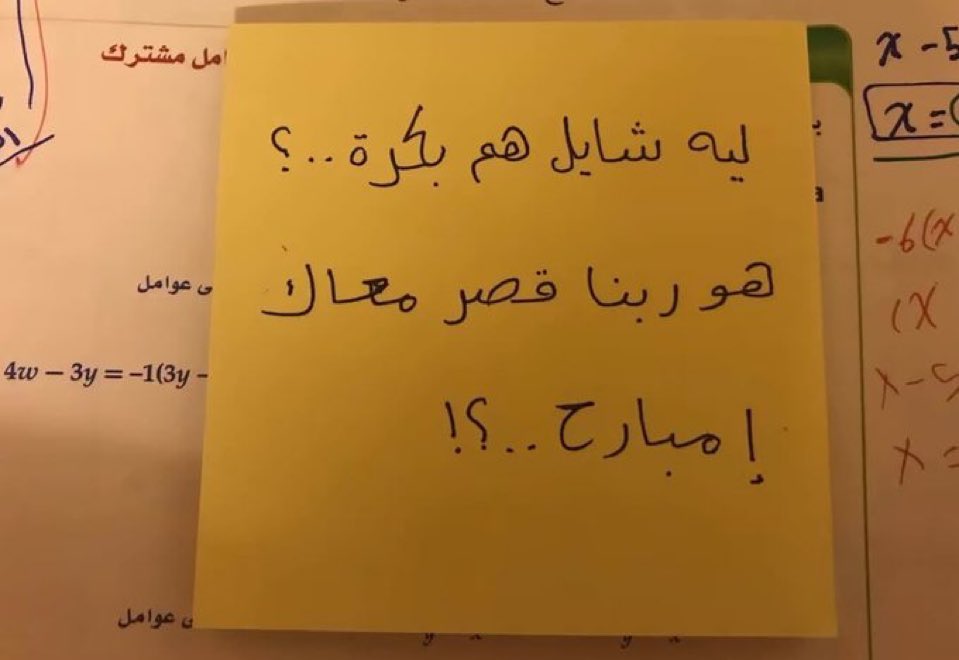 امل مشترك
x - 5
x =
ليه شايل هم بكرة..؟
-6(x
هو ربنا قصر معاك
ى عوامل
(x
4w − 3y = −1(3y −
x - 5
إمبارح..؟!
x =
ى عوامل